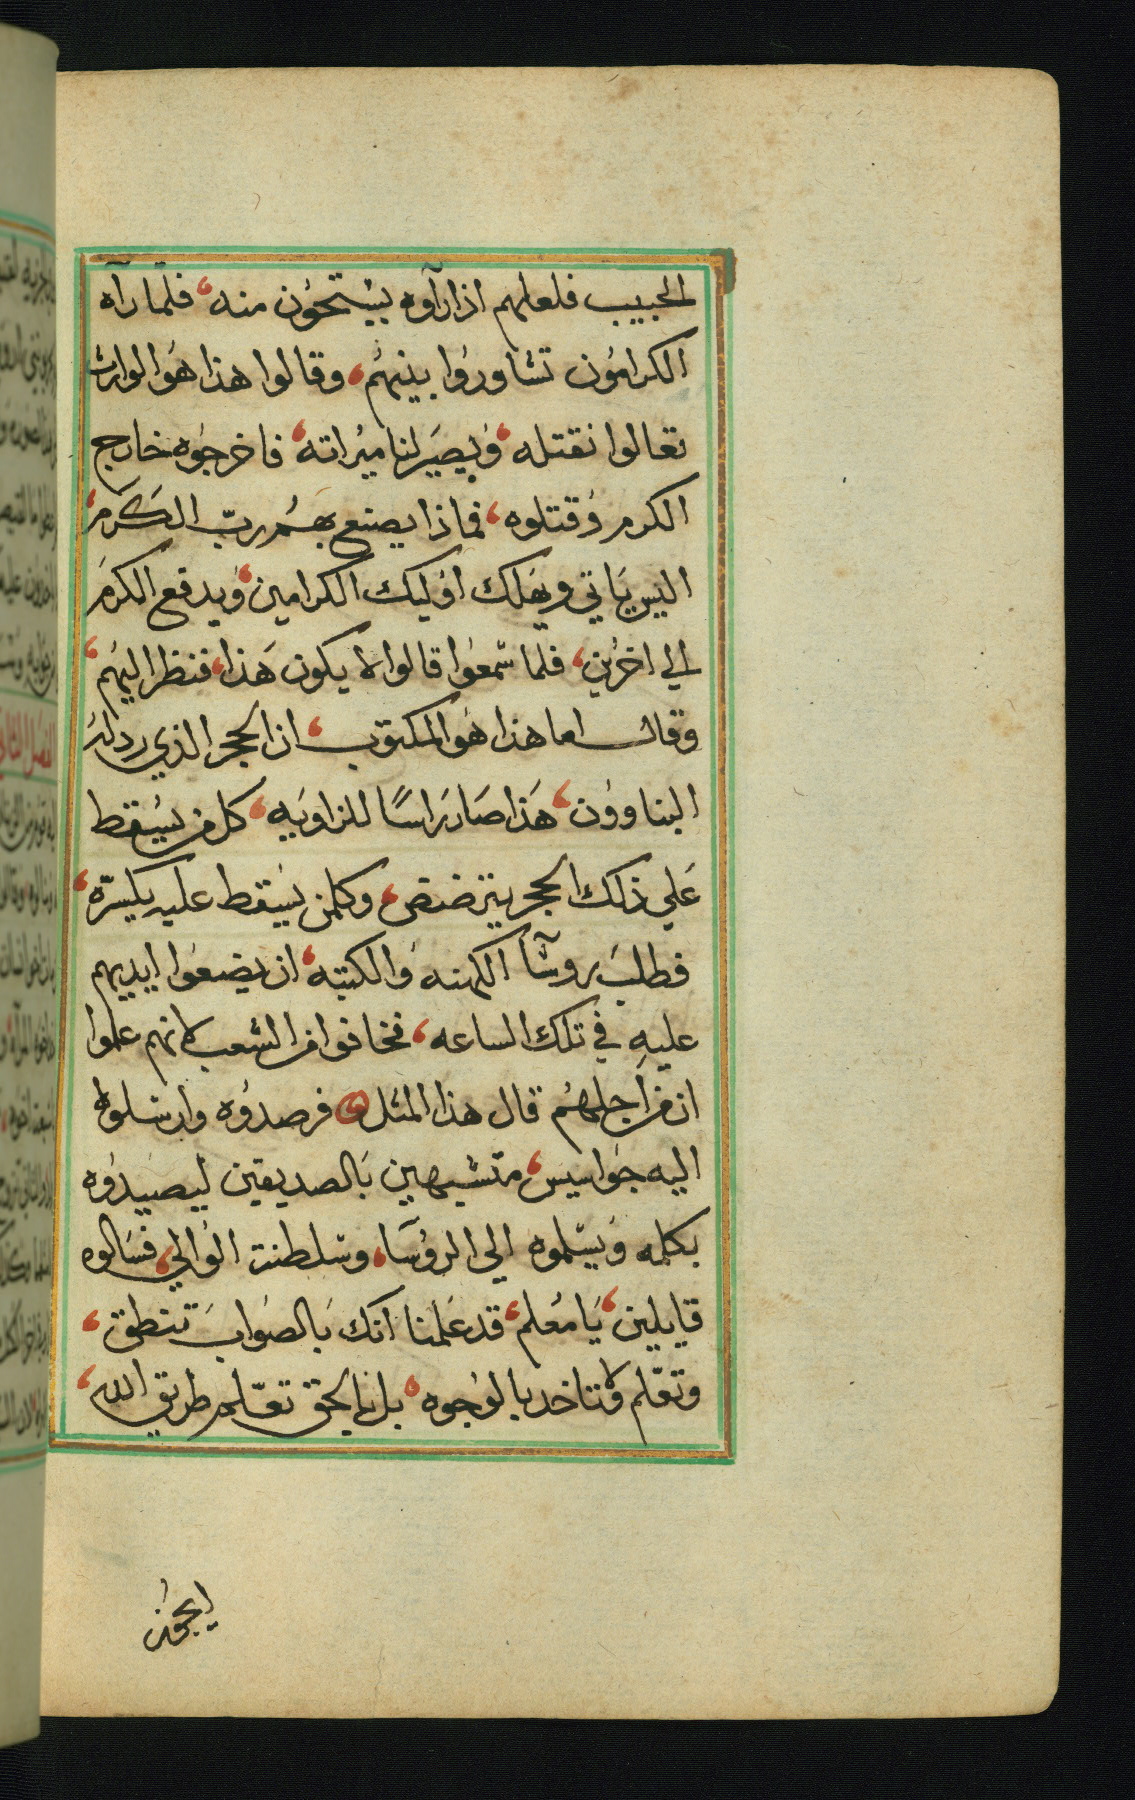 الحبيب فلعلهم اذا رآوه يستحوُن منه، فلمّا رآه
الكرامُون تشاورُوا بينهُم، وقالوا هذا هُوَ الوارث
تعالوا نقتله، وُيصيَر لنا ميُراثه، فاخرجُوه خارج
الكرم وُقتلوه، فماذا يصنع بهُم ربّ الكرَم،
اليس يَاتي ويهَلك اوُليك الكرامين، وُيدفع الكرمَ
الي اخرُين، فلما سّمعُوا قالوا لا يكون هَذا، فنظر اليهُم،
وقال اما هذا هُو المكتوب، ان الحجر الذي ردلهَ
البناووُن، هَذا صَار رَاسًا للزاويَه، كل من يسُقط
عَلي ذلك الحجر يترضض، وكلمن يسُقط عليه يكسرّه،
فطلبَ روسآ الكهنه وَالكتبه، ان يضعوَا ايديهم
عليهِ في تلك الساعه، فخافوا من الشعب لانهم علموا
ان من اجلهُم قال هذا المثل فرصدوُه وارسَلوا
اليه جوَاسيس، متشبهين بَالصديقين ليصيَدوُه
بكلمه وَيسّلموه الي الروُسَا، وسّلطنة الوُالي، فسَالوه
قايلين، يَا معُلم، قد عَلمنا انك بَالصوَاب تنطق،
وتعّلم ولا تاخد بالوُجوه، بل بالحق تعّلم طريق الله،
ايجوُز